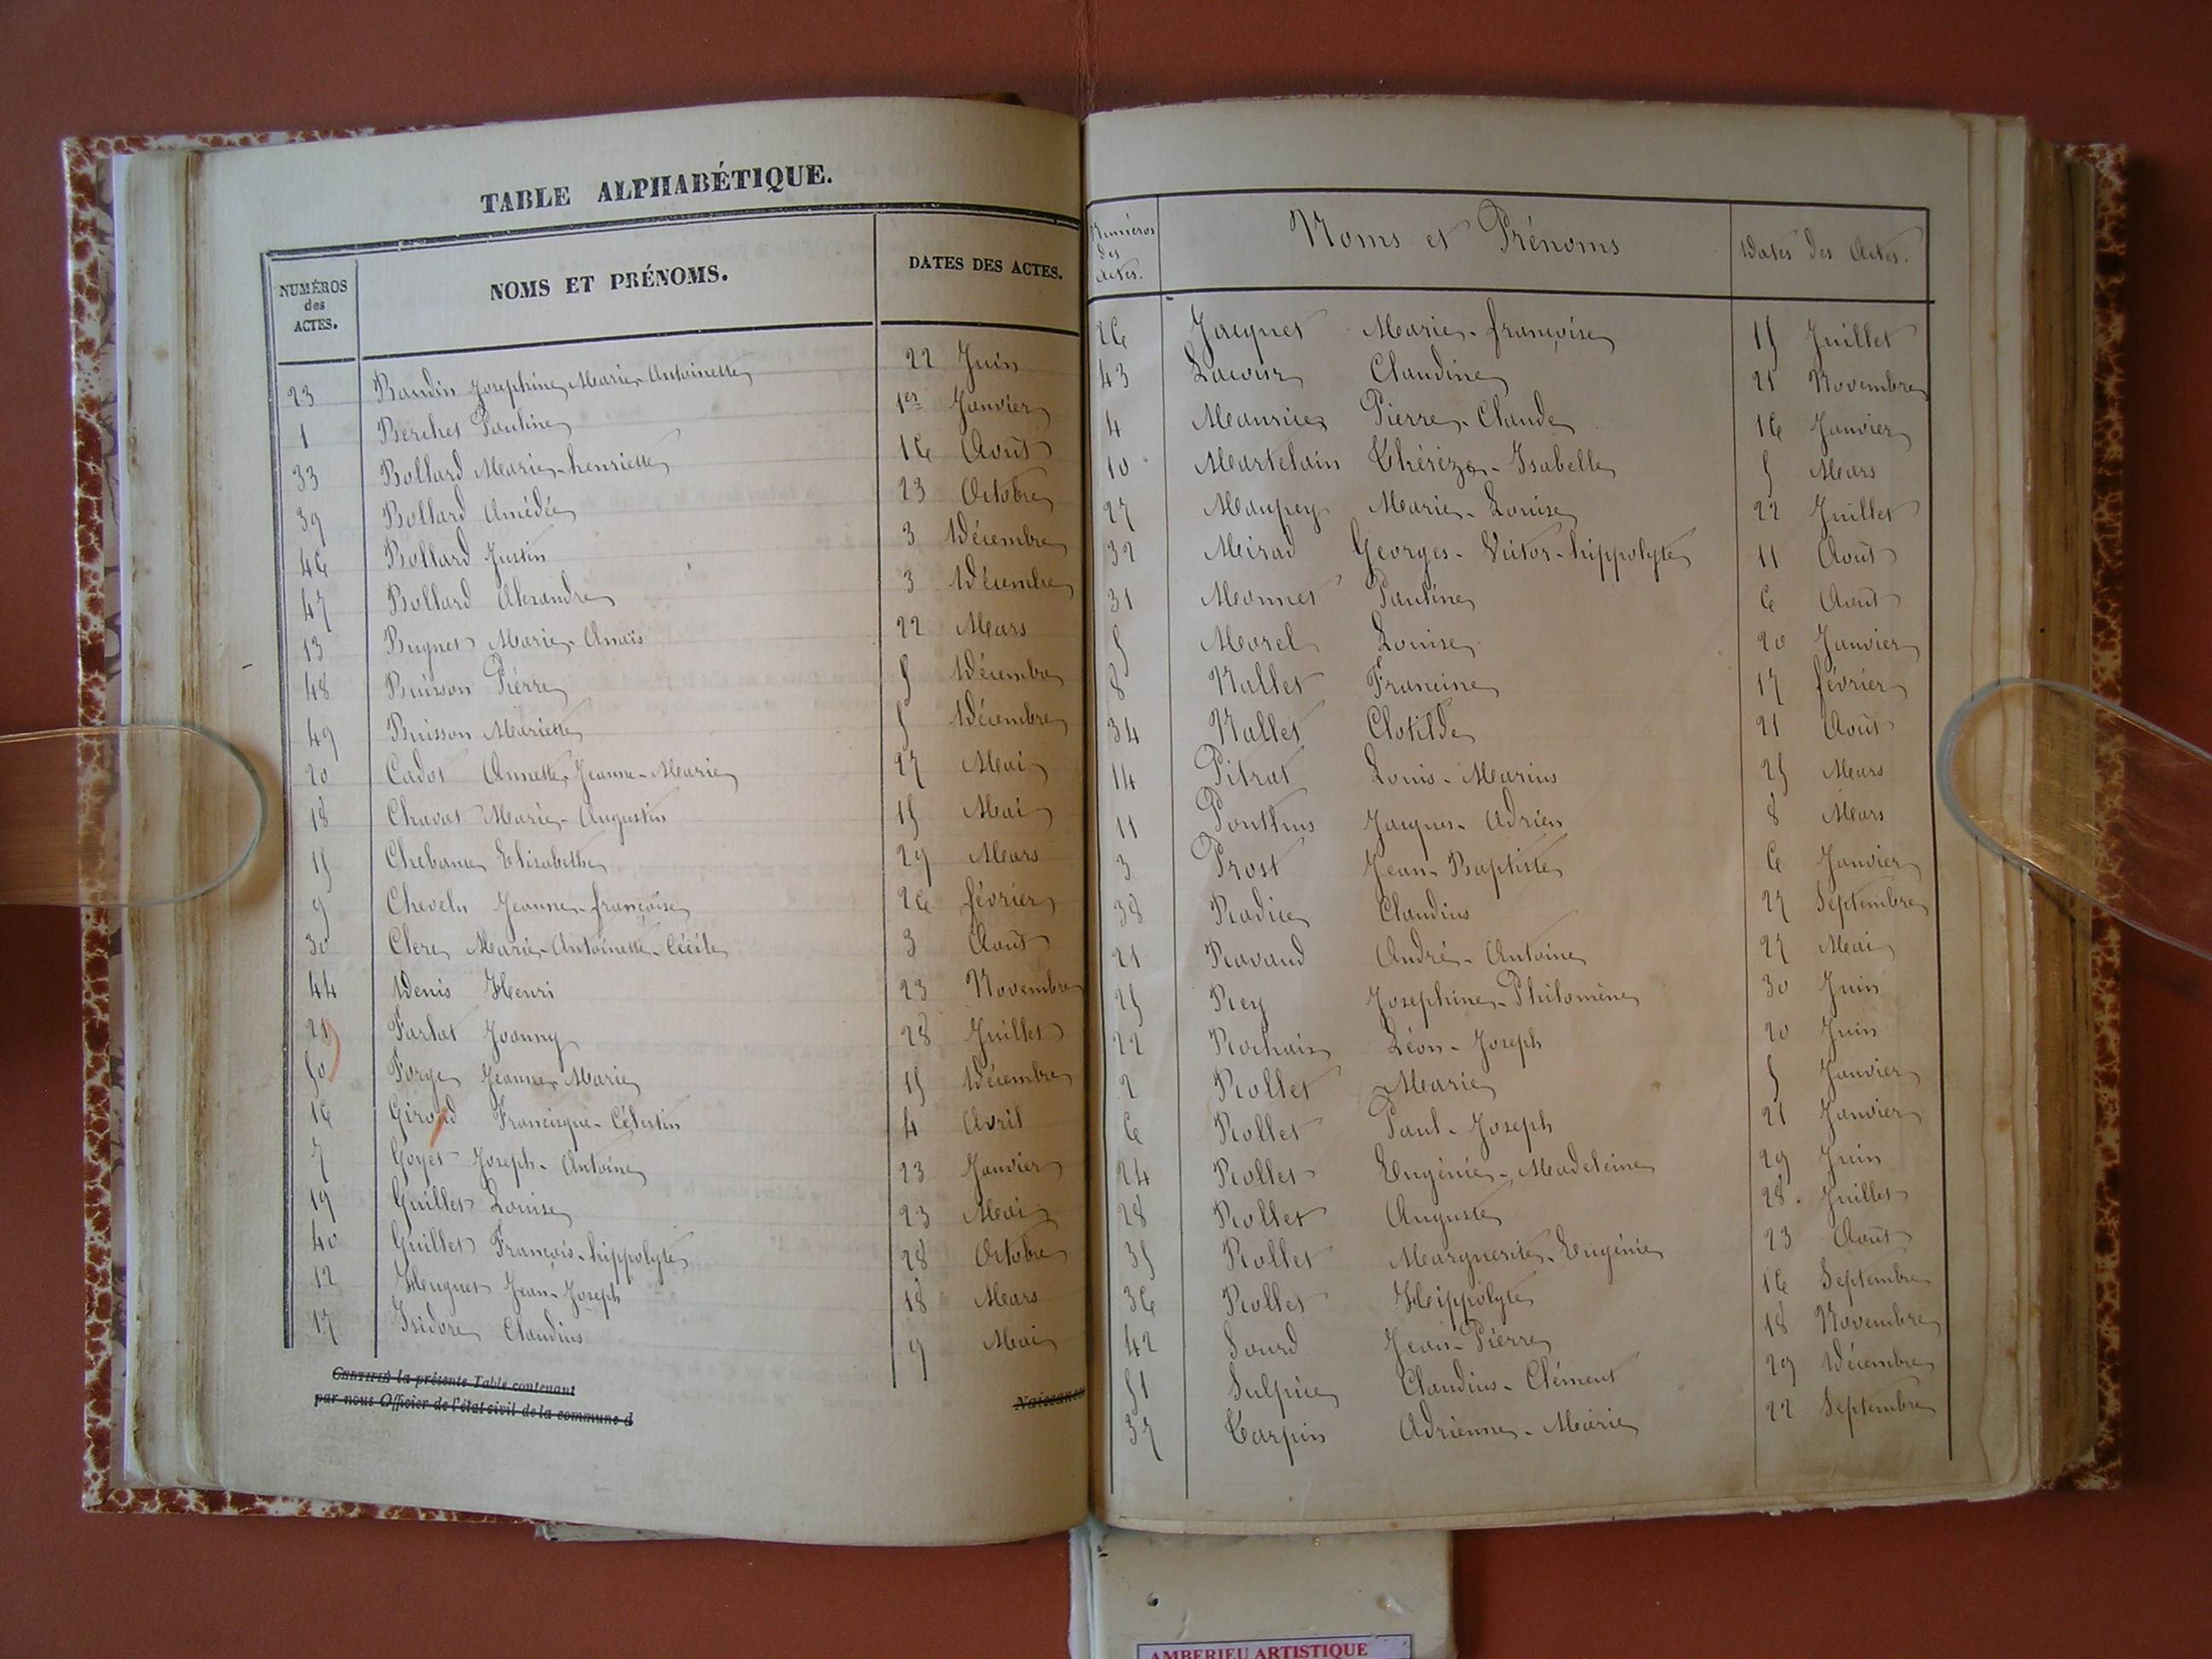 TABLE ALPHABÉTIQUE.
NUMÉROS des ACTES. NOMS ET PRÉNOMS. DATES DES ACTES.
23 Baudin Josephine, Marie-Antoinette 22 Juin
1 Berchet Pauline 1er Janvier
33 Bollard Marie-henriette 16 Août
39 Bollard Amédée 23 Octobre
46 Bollard Justin 3 Décembre
47 Bollard Alexandre 3 Décembre
13 Bugnet Marie-Anaïs 22 Mars
48 Buisson Pierre 5 Décembre
49 Buisson Mariette 5 Décembre
20 Cadot Annette, Jeanne-Marie 27 Mai
18 Chavat Marie-Augustin 15 Mai
15 Chebance Elisabeth 29 Mars
9 Chevelu Jeanne-françoise 26 février
30 Clerc Marie-Antoinette-Cécile 3 Août
44 Denis Henri 23 Novembre
29 Farlat Joanny 28 Juillet
50 Forge Jeanne-Marie 15 Décembre
16 Giroud Francisque-Célestin 4 Avril
7 Goyet Joseph-Antoine 23 Janvier
19 Guillet Louise 23 Mai
40 Guillet François-hippolyte 28 Octobre
12 Hugnet Jean-Joseph 18 Mars
17 Isidore Claudius 9 Mai
CERTIFIÉ la présente Table contenant Naissance
par nous Officier de l'état civil de la commune d
Numéros des Actes. Noms et Prénoms Dates des Actes.
26 Jacquet Marie-françoise 15 Juillet
43 Lacour Claudine 21 Novembre
4 Maurice Pierre-Claude 16 Janvier
10 Martelain Thérèze-Isabelle 5 Mars
27 Maupey Marie-Louise 22 Juillet
32 Mirad Georges-Victor-hippolyte 11 Août
31 Monnet Pauline 6 Août
5 Morel Louise 20 Janvier
8 Nallet Francine 17 février
34 Nallet Clotilde 21 Août
14 Pitrat Louis-Marius 25 Mars
11 Ponthus Jacques-Adrien 8 Mars
3 Prost Jean-Baptiste 6 Janvier
38 Radice Claudius 27 Septembre
21 Ravaud André-Antoine 27 Mai
25 Rey Josephine-Philomène 30 Juin
22 Rochaix Léon-Joseph 20 Juin
2 Rollet Marie 5 Janvier
6 Rollet Paul-Joseph 21 Janvier
24 Rollet Eugénie-Madeleine 29 Juin
28 Rollet Auguste 28. Juillet
35 Rollet Marguerite-Eugénie 23 Août
36 Rollet Hippolyte 16 Septembre
42 Sourd Jean-Pierre 18 Novembre
51 Sulpice Claudius-Clément 29 Décembre
37 Tarpin Adrienne-Marie 22 Septembre
AMBERIEU ARTISTIQUE